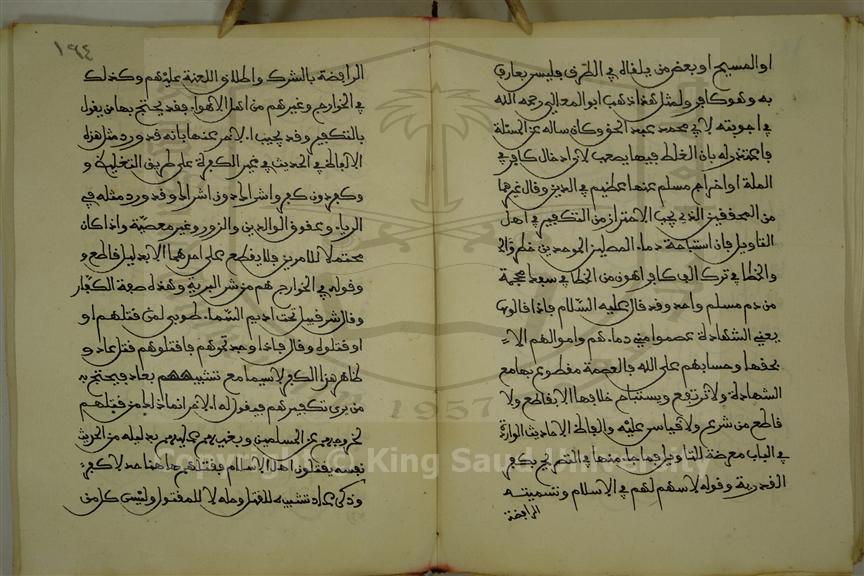 او المسيح او بعض من يلقاه في الطرق فليس بعارف
به وهو كافر ولمثل هذا ذهب ابو المعالي رحمه الله
في اجوبته لابي محمد عبد الحق وكان ساله عن المسئلة
فاعتذر له بان الغلط فيها يصعب لان ادخال كافر في
الملة او اخراج مسلم عنها عظيم في الدين وقال غيرهما
من المحققين الذي يجب الاحتراز من التكفير في اهل
التاويل فان استباحة دماء المصلين الموحدين خطر
والخطا في ترك الف كافر اهون من الخطا في سفك محجمة
من دم مسلم واحد وقد قال عليه السلام فاذا قالوها
يعني الشهادة عصموا مني دماءهم واموالهم الا
بحقها وحسابهم على الله فالعصمة مقطوع بها مع
الشهادة ولا ترتفع ويستباح خلافها الا بقاطع ولا
قاطع من شرع ولا قياس عليه والفاظ الاحاديث الواردة
في الباب معرضة للتاويل فما جاء منها في التصريح بكفر
القدرية وقوله لا سهم لهم في الاسلام وتسميته
الرافضة
١٦٤
الرافضة بالشرك واطلاق اللعنة عليهم وكذلك
في الخوارج وغيرهم من اهل الاهواء فقد يحتج بها من يقول
بالتكفير وقد يجيب الاخر عنها بانه قد ورد مثل هذه
الالفاظ في الحديث في غير الكفرة على طريق التغليظ و
وكفر دون كفر واشراك دون اشراك وقد ورد مثله في
الرياء وعقوق الوالدين والزور وغير معصية واذا كان
محتملا للامرين فلا يقطع على احدهما الا بدليل قاطع و
وقوله في الخوارج هم من شر البرية وهذه صفة الكفار
وقال شر قبيل تحت اديم السماء طوبى لمن قتلهم او
او قتلوه وقال فاذا وجدتموهم فاقتلوهم قتل عاد و
ظاهر هذا الكفر لاسيما مع تشبيههم بعاد فيحتج به
من يرى تكفيرهم فيقول له الاخر انما ذلك من قتلهم
لخروجهم عن المسلمين وبغيهم عليهم بدليله من الحديث
نفسه يقتلون اهل الاسلام فقتلهم هاهنا حد لا كفر
وذكر عاد تشبيه للقتل وحله لا للمقتول وليس كل من